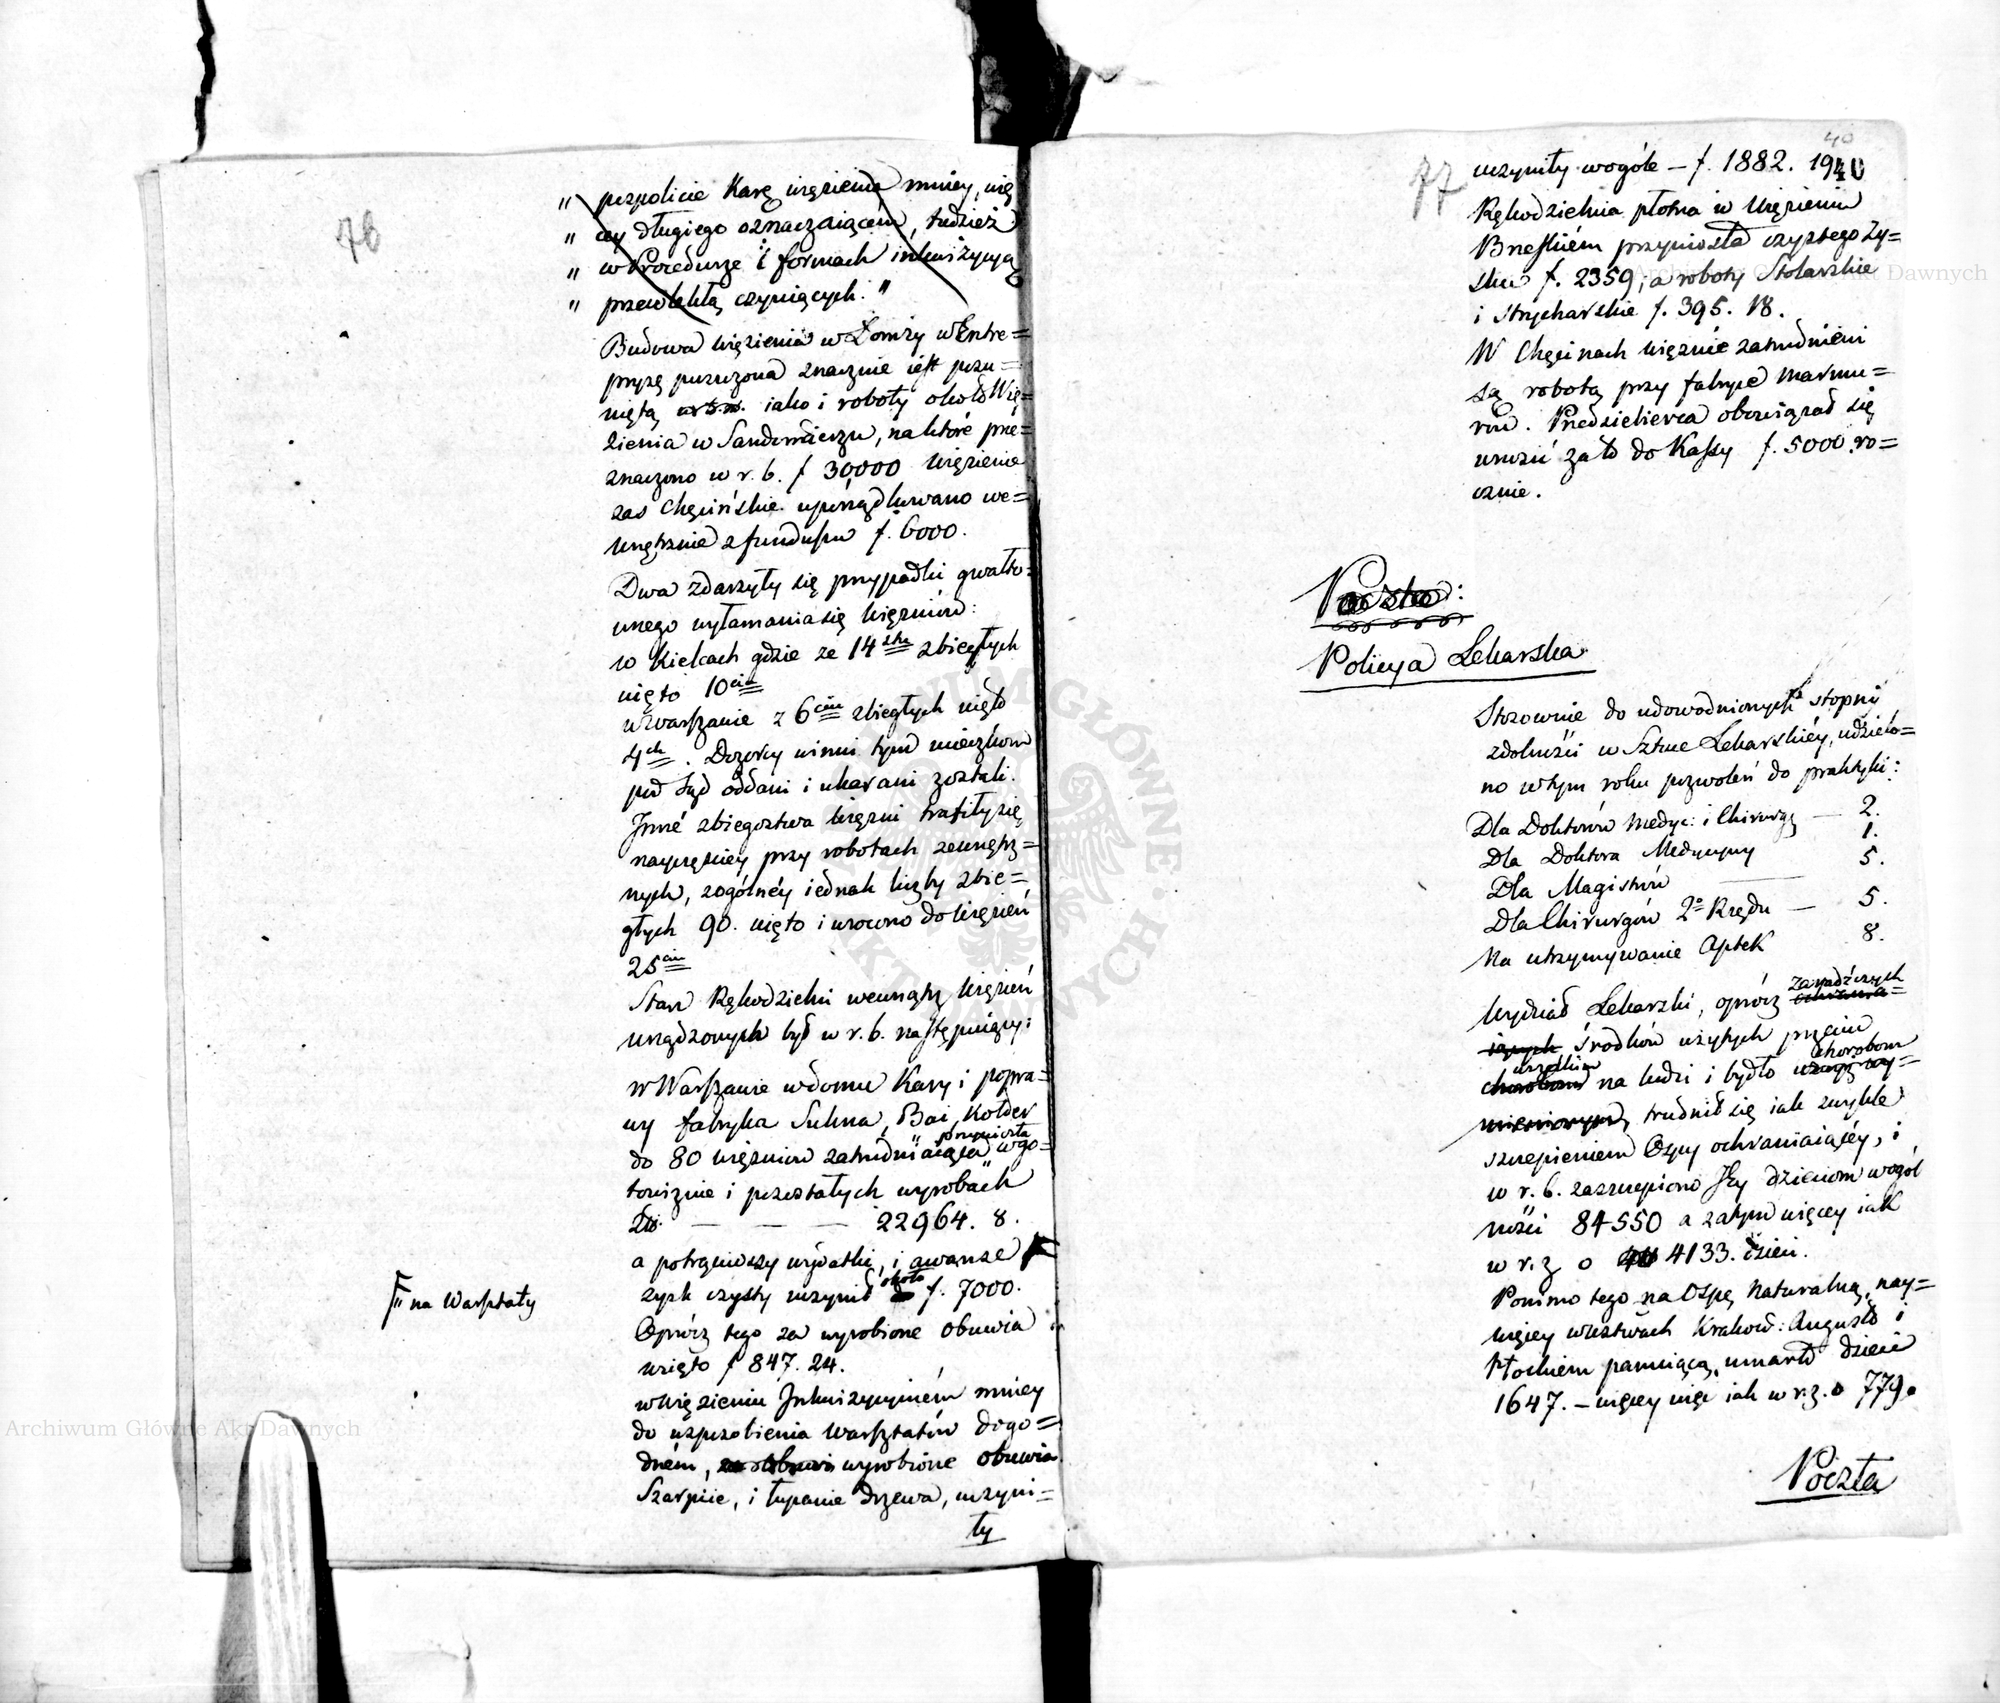 76
" pospolicie Karę więzienia mniey, wię
" cey długiego oznaczaiącem, tudzież
" w Procedurze i formach inkwizycyą
" przewlekłą czyniących."
Budowa więzienia w Łomży w Entre=
pryzę puszczona znacznie iest posu=
niętą iako i roboty około Wię=
zienia w Sandomierzu, na które prze=
znaczono w r. b. f 30000 Więzienie
zas Chęcińskie uporządkowano we=
wnętrznie z funduszu f. 6000.
Dwa zdarzyły się przypadki gwałto=
wnego wyłamania się Więzniów:
w Kielcach gdzie ze 14stu zbiegłych
uięto 10ciu
w Warszawie z 6ciu zbiegłych uięto
4ch. Dozorcy winni tym ucieczkom
pod Sąd oddani i ukarani zostali.
Inne zbiegostwa Więzni trafiły się
nayczęściey przy robotach zewnętrz=
nych, z ogólney iednak liczby zbie=
głych 90. uięto i wrocono do Więzień
25ciu
Stan Rękodzielni wewnątrz Więzień
urządzonych był w r. b. następuiący:
w Warszawie w domu Kary i popra=
wy fabryka Sukna, Bai, Kołder
do 80 więzniow zatrudniaiąca przyniosła w go=
towiznie i pozostałych wyrobach
Zło. — — — 22964. 8.
a potrąciwszy wydatki, i awanse F
zysk czysty uczynił około f. 7000.
F na Warsztaty
Oprócz tego za wyrobione Obuwia
wzięto f 847. 24.
w Więzieniu Inkwizycyinem mniey
do usposobienia Warsztatów dogo=
dnem, wyrobione Obuwia
Szarpie, i łupanie drzewa, uczyni=
ły
40
77
uczyniły wogóle — f. 1882. 19
Rękodzielnia płotna w Więzieniu
Brzeskiém przyniosła czystego Zy=
sku f. 2359; a roboty Stolarskie
i Strycharskie f. 395. 18.
W Chęcinach Więznie zatrudnieni
są robotą przy fabryce Marmu=
rów. Przedsiebierca obowiązał się
wnosić za to do Kassy f. 5000 ro=
cznie.
Poczta:
Policya Lekarska
Stosownie do udowodnionych stopni
zdolności w Sztuce Lekarskiéy, udzielo=
no w tym roku pozwoleń do praktyki:
Dla Doktorów Medyc: i Chirurgy — 2.
Dla Doktora Medycyny 1.
Dla Magistrów — 5.
Dla Chirurgów 2o Rzędu — 5.
Na utrzymywanie Aptek 8.
Wydział Lekarski, oprócz zaradczych
środków użytych przeciw
wszelkim na ludzi i bydło chorobom
trudnił się iak zwykle
szczepieniem Ospy ochraniaiącéy, i
w r. b. zaszczepiono Jey dzieciom w ogól
ności 84550 a zatym więcey iak
w r. z o 4133. dzieci.
Pomimo tego na Ospę Naturalną, nay=
więcey w wztwach Krakow: Augusto i
Płockiem panuiącą, umarło dzieci
1647. — więcey więc iak w r. z. o 779.
Poczta
Archiwum Główne Akt Dawnych
ARCHIWUM GŁÓWNE AKT DAWNYCH